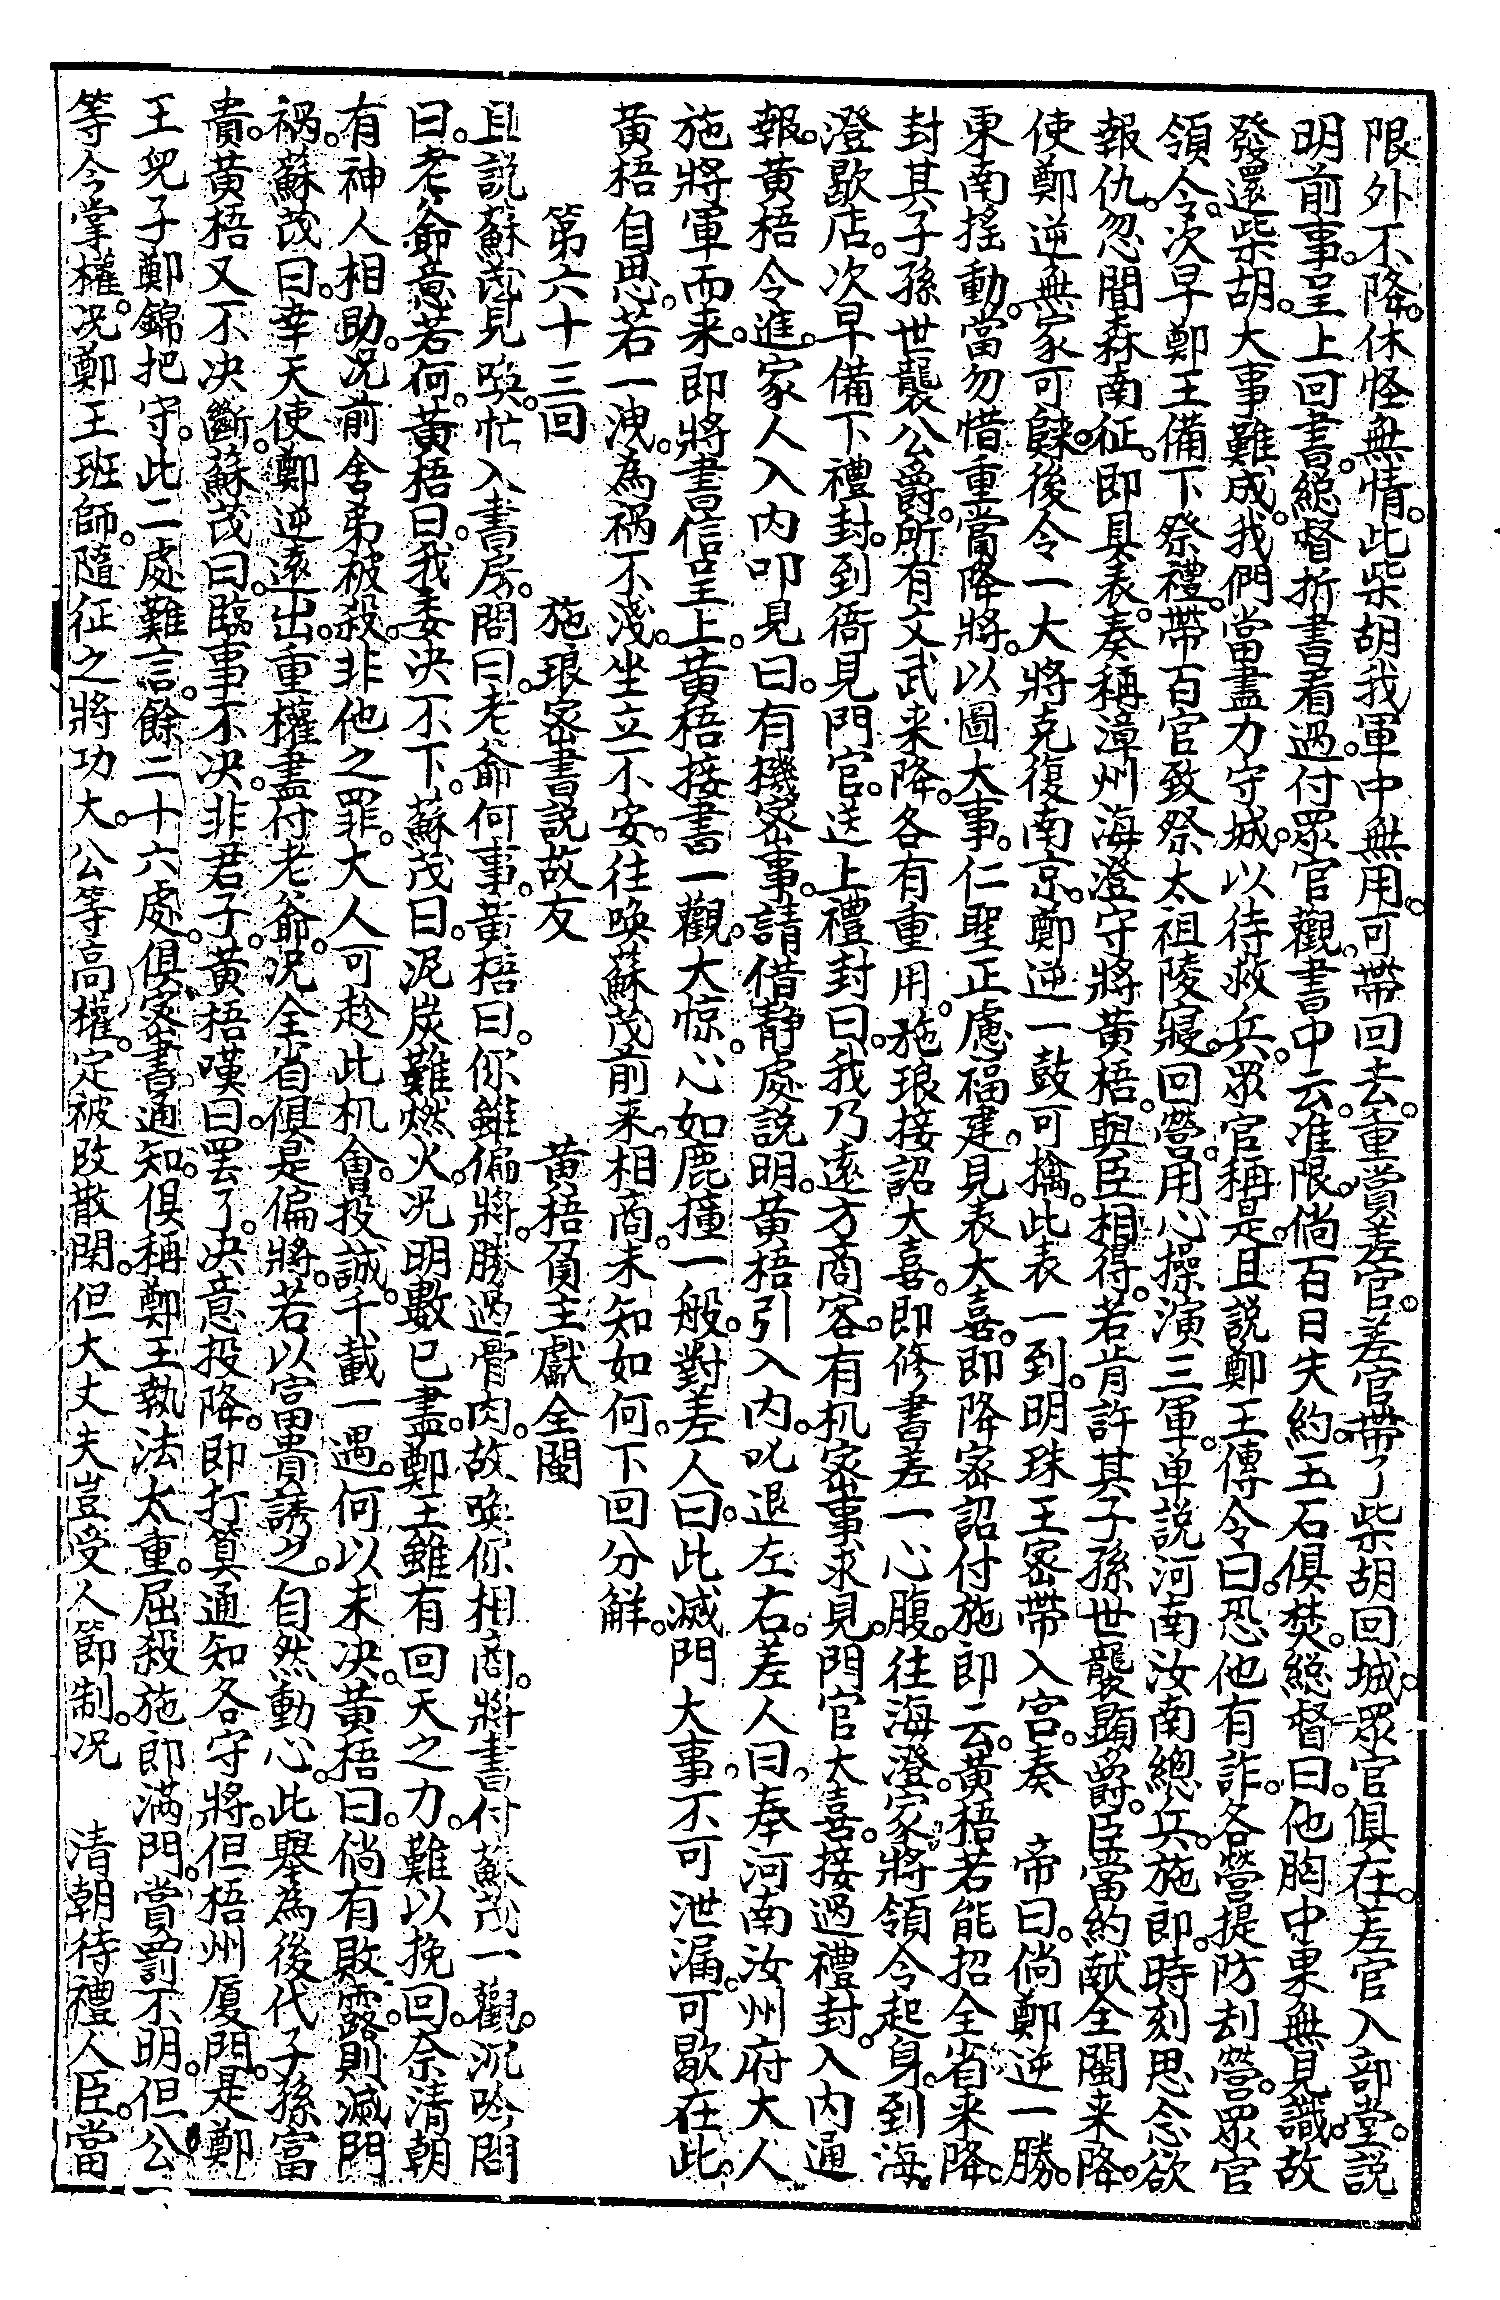 限外不降。休怪無情。此柴胡我軍中無用。可帶回去。重賞差官。差官帶了柴胡回城。眾官俱在。差官入部堂。說
明前事。呈上回書。總督折書看過。付眾官觀。書中云。准限。倘百日失約。玉石俱焚。總督曰。他胸中果無見識。故
發還柴胡。大事難成。我們當盡力守城。以待救兵。眾官稱是。且說鄭王傳令曰。恐他有詐。各營提防刦營。眾官
領令。次早鄭王備下祭禮。帶百官致祭太祖陵寢。回營。用心操演三軍。单說河南汝南總兵。施郎。時刻思念欲
報仇。忽聞森南征。即具表。奏稱漳州海澄守將黃梧。與臣相得。若肯許其子孫世襲顯爵。臣當約献全閩来降。
使鄭逆無家可歸。後令一大將克復南京。鄭逆一鼓可擒。此表一到。明珠王密帶入宮。奏　帝曰。倘鄭逆一勝。
東南搖動。當勿惜重當降將。以圖大事。仁聖正慮福建。見表大喜。即降密詔付施郎云。黃梧若能招全省来降。
封其子孫世襲公爵。所有文武来降。各有重用。施琅接詔大喜。即修書差一心腹。往海澄。家將領令起身。到海
澄歇店。次早備下禮封。到衙見門官。送上禮封曰。我乃遠方商客。有机密事求見。門官大喜。接過禮封。入內通
報。黃梧令進。家人入內叩見曰。有機密事。請借静處說明。黃梧引入內。叱退左右。差人曰。奉河南汝州府大人
施將軍而来。即將書信呈上。黃梧接書一觀。大惊。心如鹿撞一般。對差人曰。此滅門大事。不可泄漏。可歇在此。
黃梧自思。若一洩。為禍不淺。坐立不安。往喚蘇茂前来。相商。未知如何。下回分解。
第六十三回　施琅密書說故友　黃梧負主獻全閩
且說蘇茂見喚。忙入書房。問曰。老爺何事。黃梧曰。你雖偏將。勝過骨肉。故喚你相商。將書付蘇茂一觀。沉吟問
曰。老爺意若何。黃梧曰。我委决不下。蘇茂曰。泥炭難燃火。况明數已盡。鄭王雖有回天之力。難以挽回。奈清朝
有神人相助。况前舍弟被殺。非他之罪。大人可趁此机會。投誠。千載一遇。何以未决。黃梧曰。倘有敗露。則滅門
禍。蘇茂曰。幸天使鄭逆遠出。重權盡付老爺。况全省俱是偏將。若以富貴誘之。自然動心。此舉為後代子孫富
貴。黃梧又不决斷。蘇茂曰。臨事不决。非君子。黃梧嘆曰。罢了。决意投降。即打算通知各守將。但梧州厦門。是鄭
王兒子鄭錦把守。此二處難言。餘二十六處。俱密書通知。俱稱鄭王執法太重。屈殺施郎滿門。賞罰不明。但公
等今掌權。况鄭王班師。隨征之將功大。公等高權。定被改散閑。但大丈夫豈受人節制。况　清朝待禮人臣。當